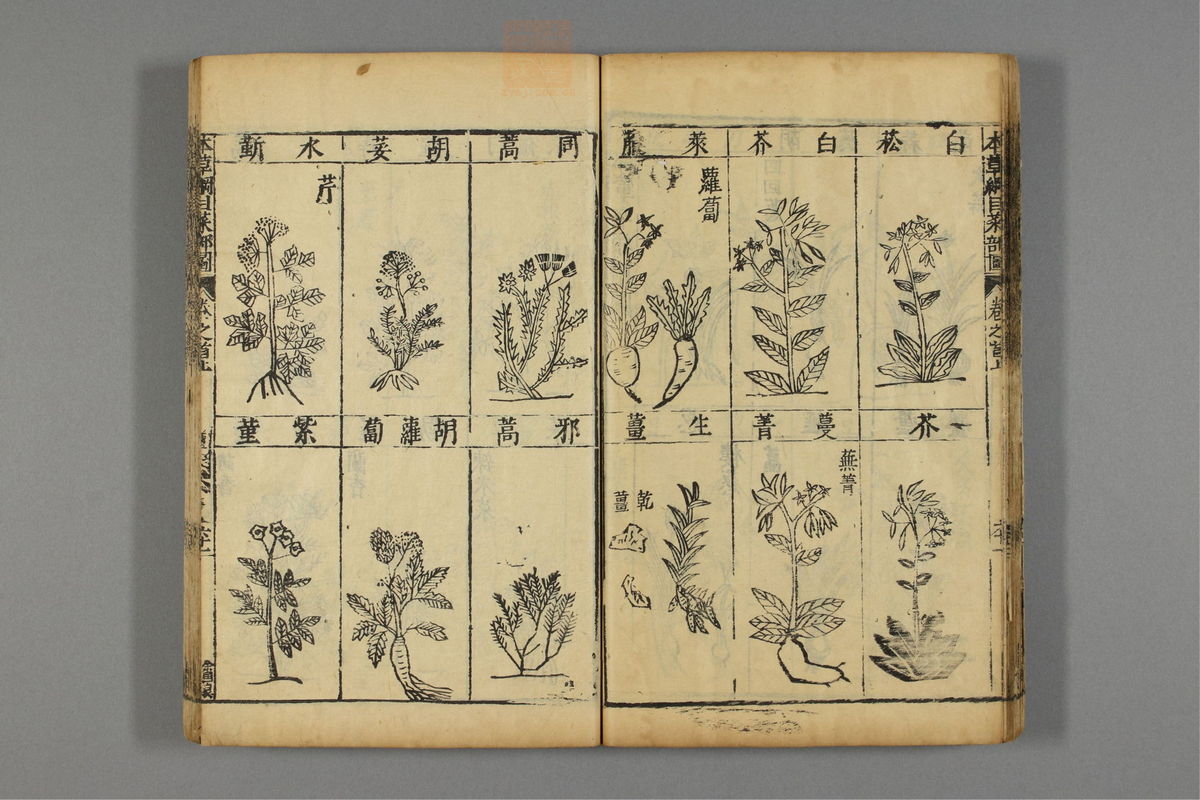 本草綱目菜部圖
卷之首上
白菘
白芥
萊菔
蘿蔔
芥
蔓菁
蕪菁
生薑
乾薑
同蒿
胡荽
水蘄
芹
邪蒿
胡蘿蔔
紫菫
本草綱目菜部圖
卷之首上